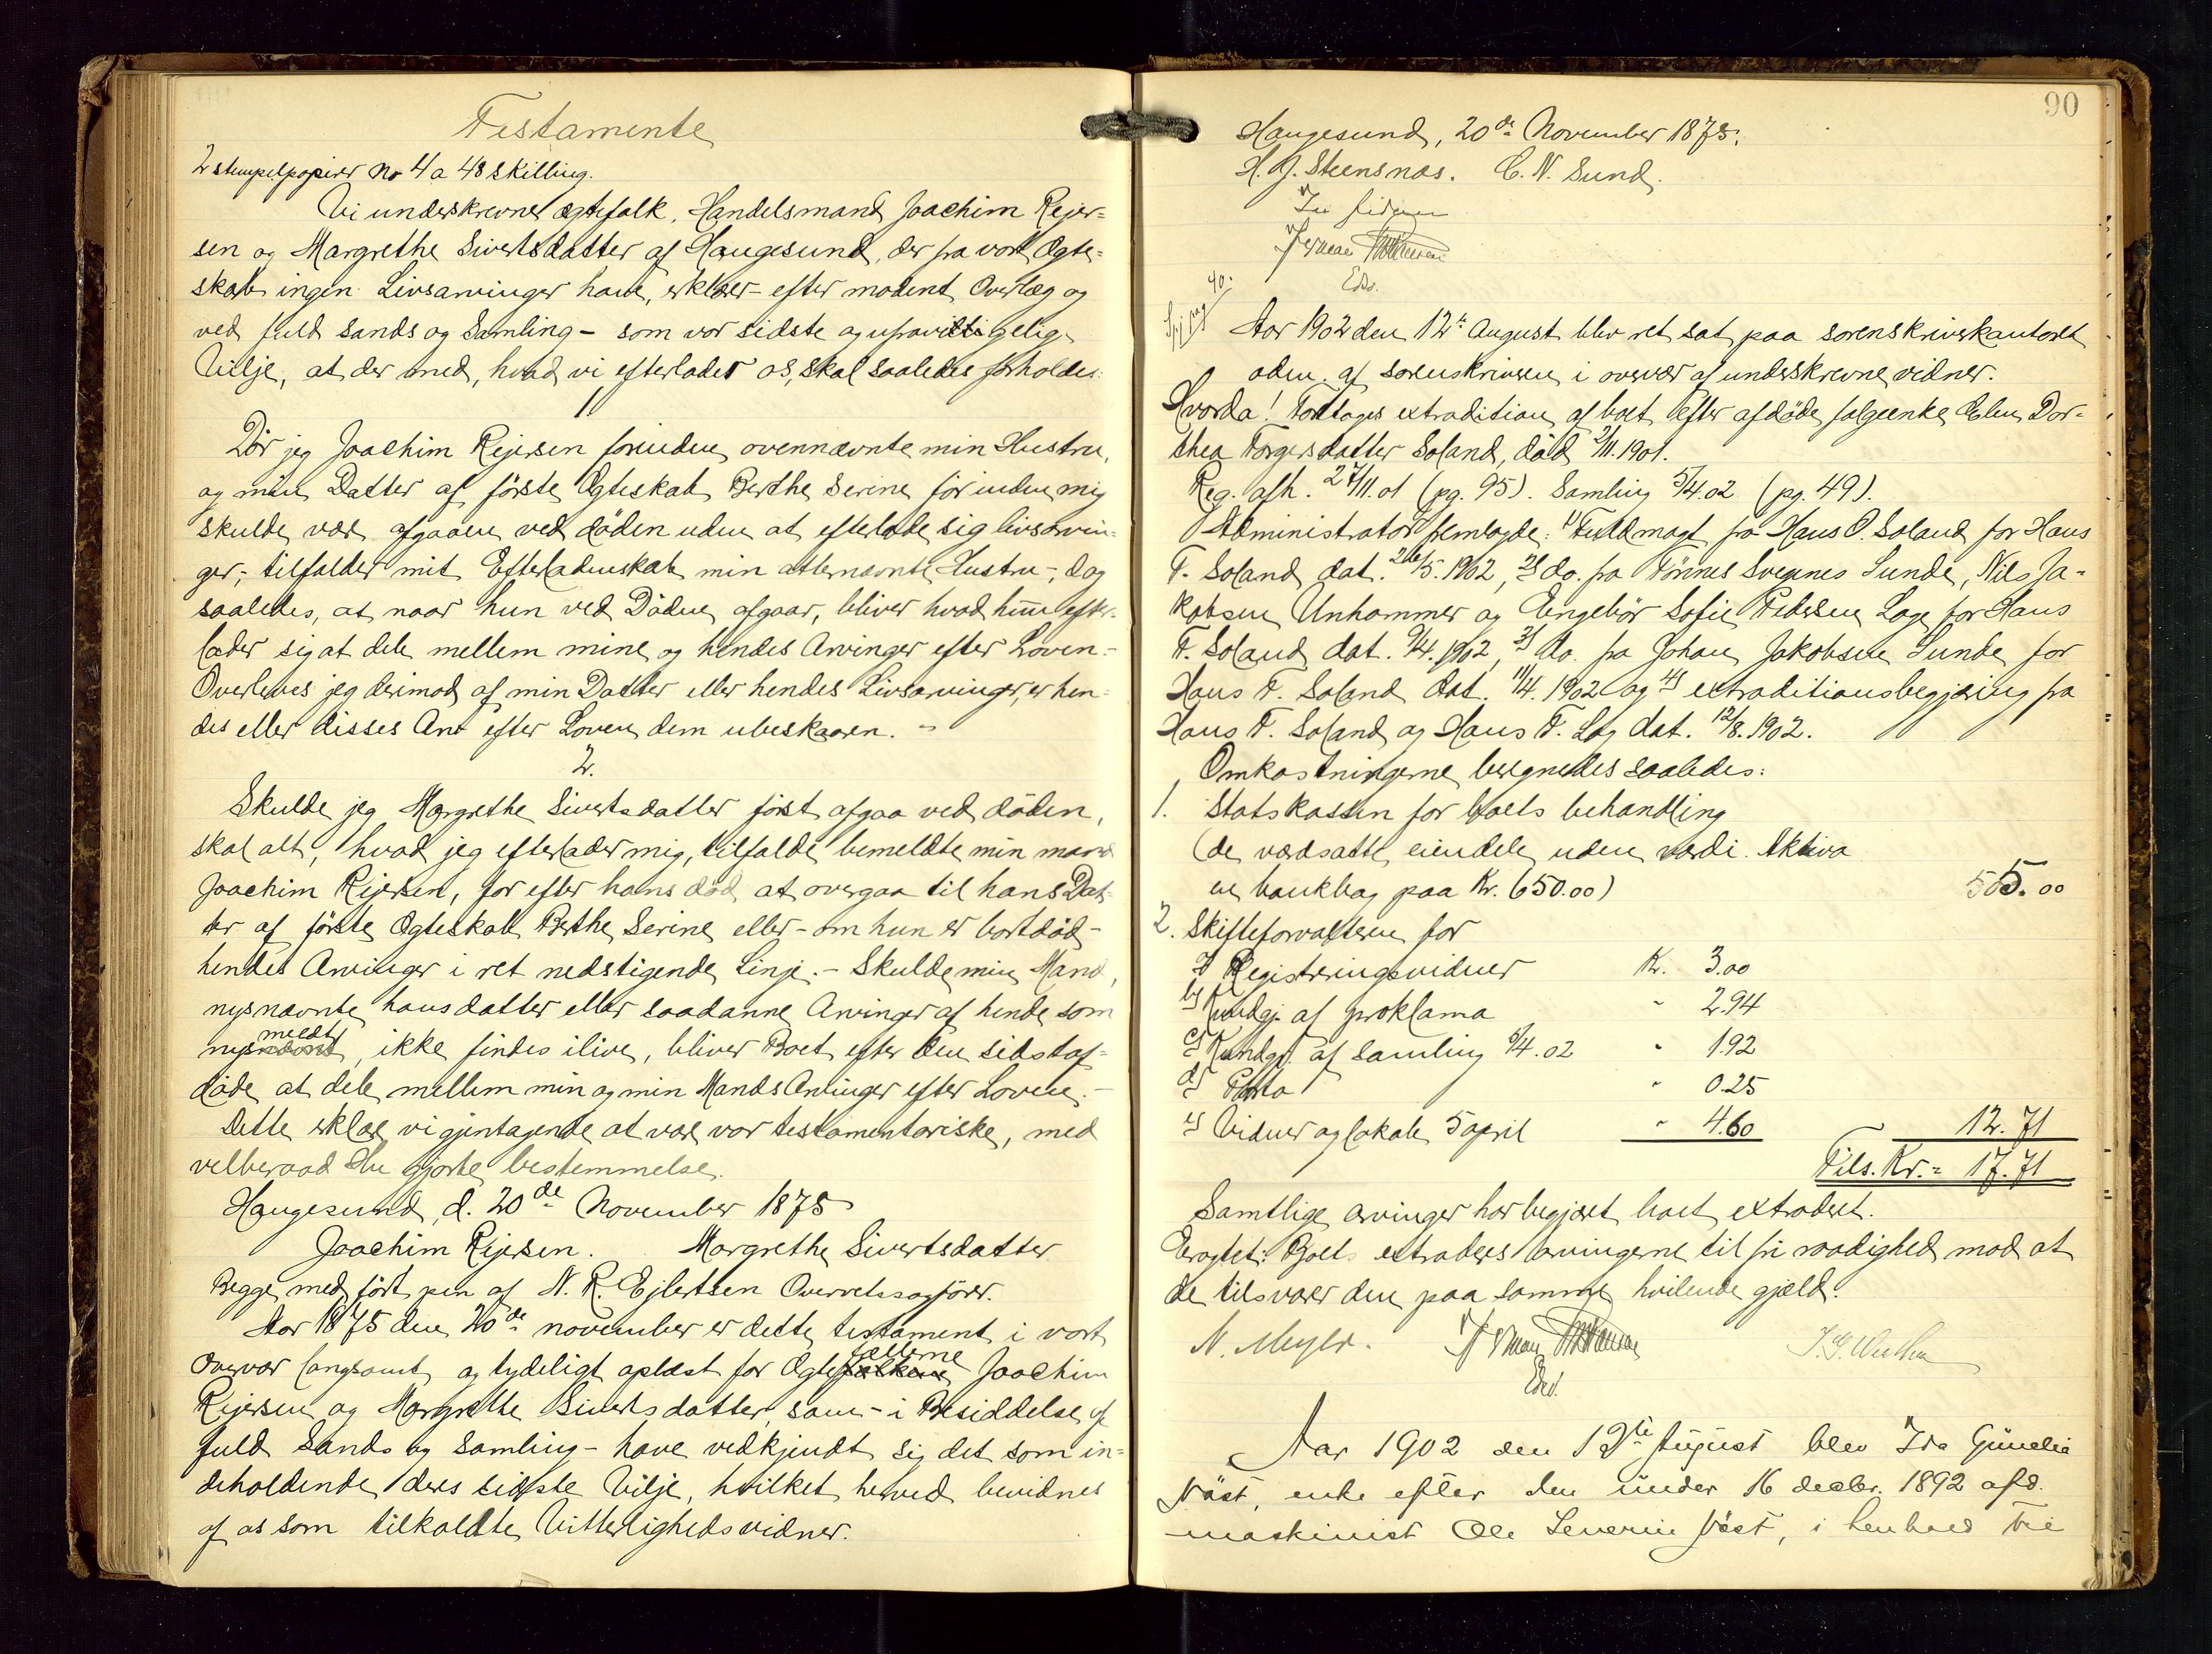 Testamente
2 stempelpapirer No 4 a 48 skilling.
Vi underskrevne ægtefolk, Handelsmand Joachim Rejer=
sen og Margrethe Sivertsdatter af Haugesund, der fra vort Ægte=
skab ingen Livsarvinger have, erklærer - efter modent Overlæg og
ved fuld Sands og Samling - som vor sidste og ufravittigelige
Villje, at der med, hvad vi efterlader os, skal saaledes forholdes:
1
Dör jeg Joachim Rejersen forinden ovennævnte min Hustru,
og min Datter af förste Ægteskab Berthe Serine før inden mig
skulde være afgaaen ved döden uden at efterlade sig livsarvin=
ger, tilfalder mit Efterladenskab min atternævnte Hustru -, dog
saaledes, at naar hun ved Döden afgaar, bliver hvad hun efter=
lader sig at dele mellem mine og hendes Arvinger efter Loven.-
Overleves jeg derimod af min Datter eller hendes Livsarvinger, er hen=
des eller disses Arv efter Loven dem ubeskaaren. -
2.
Skulde jeg Margrethe Sivertsdatter först afgaa ved döden,
skal alt, hvad jeg efterlader mig, tilfalde bemeldte min mand
Joachim Rejersen, for efter hans död at overgaa til hans Dat=
ter af förste Ægteskab Berthe Serine eller - om hun er bortdöd -
hendes Arvinger i ret nedstigende Linje. - Skulde min Mand,
nysnævnte hans datter eller saadanne Arvinger af hende som
nysmeldt, ikke findes ilive, bliver Boet efter den sidstaf=
döde at dele mellem min og min Mands Arvinger efter Loven. -
Dette erklære vi gjentagende at være vor testamentariske, med
velberaad Hu gjorte bestemmelse.
Haugesund, d. 20de November 1875
Joachim Rejersen. Margrethe Sivertsdatter
Begge med fört pen af N. R. Ejlertsen Overretssagförer.
Aar 1875 den 20de november er dette testament i vort
Overvær langsomt og tydeligt oplæst for Ægtefællerne Joachim
Rejersen og Margrethe Sivertsdatter, som - i Besiddelse af
fuld Sands og Samling - have vedkjendt sig det som in=
deholdende deres sidste Vilje, hvilket herved bevidnes
af os som tilkaldte Vitterlighedsvidner.
90
Haugesund, 20de November 1875.
H. J. Steensnæs. C. N. Sund.
Herman
Edv.
40.
Aar 1902 den 12te August blev ret sat paa sorenskriverkontoret
adm. af sorenskriveren i overvær af underskrevne vidner.
Hvorda! Foretages extradition af boet efter afdöde fölgeenke Elen Dor=
thea Torgersdatter Soland, död 2/11.1901.
Reg. afh. 27/11.01 (pg. 95). Samling 5/4.02 (pg. 49).
Administrator fremlagde: 1) Fuldmagt fra Hans O. Soland for Hans
T. Soland dat. 26/5.1902, 2) do. fra Tönnes Svennes Sunde, Nils Ja=
kobsen Unhammer og Engebör Sofie Pedersen Log for Hans
T. Soland dat. 9/4.1902, 3) do. fra Johan Jakobsen Sunde for
Hans T. Soland dat. 11/4.1902 og 4) extraditionsbegjæring fra
Hans T. Soland og Hans T. Log dat. 12/8.1902.
Omkostningerne beregnedes saaledes:
1. Statskassen for boets behandling
(de værdsatte eiendele uden værdi. Aktiva
en bankbog paa Kr. 650.00) 5.00
2. Skifteforvalteren for
a) Registreringsvidner Kr. 3.00
b) Kundgj. af proklama " 2.94
c) Kundgj. af samling 5/4.02 " 1.92
d) Porto " 0.25
e) Vidner og lokale 5 april " 4.60 12.71
Tils. Kr. = 17.71
Samtlige arvinger har begjæret boet extraderet.
Eragtet: Boet extraderes arvingerne til fri raadighed mod at
de tilsvarer den paa samme hvilende gjæld.
N. Meyer. Herman
Edv.
Aar 1902 den 12te August blev Ida Gunelia
Vast, enke efter den under 16 decbr. 1892 afd.
maskinist Ole Severin Vast, i henhold til